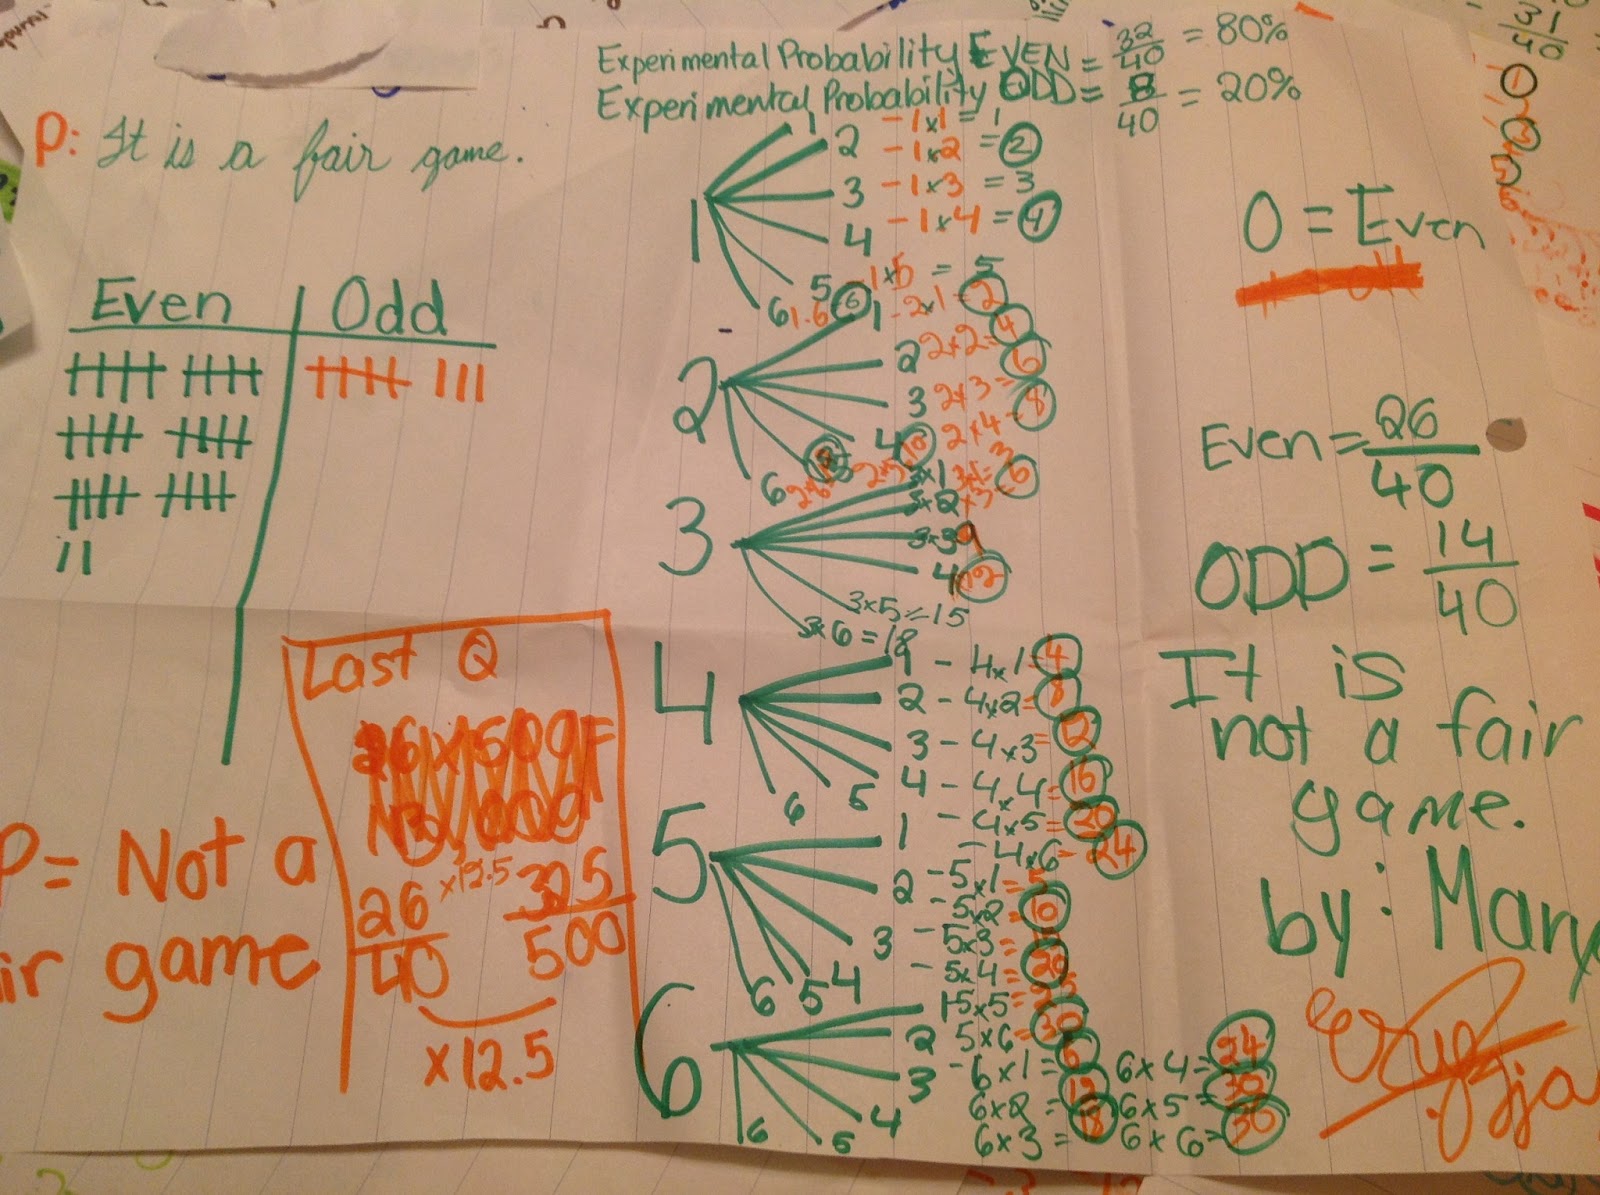 Experimental Probability EVEN = 32/40 = 80%
Experimental Probability ODD = 8/40 = 20%
P: It is a fair game.
Even | Odd
Last Q
26/40 x12.5 325/500
x12.5
P= Not a
ir game
1
1 - 1x1 = 1
2 - 1x2 = 2
3 - 1x3 = 3
4 - 1x4 = 4
5 1x5 = 5
6 1.6 6
2
1 - 2x1 = 2
2 2x2 = 4
3 2x3 = 6
4 10 2x4 = 8
6
3
3x1
3x2
3x3 9
4 12
3x5 = 15
3x6 = 18
4
1 - 4x1 = 4
2 - 4x2 = 8
3 - 4x3 = 12
4 - 4x4 = 16
6 5 - 4x5 = 20
- 4x6 - 24
5
1
2 - 5x1 =
- 5x2 = 10
3 - 5x3 =
6 5 4 - 5x4 = 20
5x5 = 25
5x6 = 30
6
2
3 - 6x1 = 6 6x4 = 24
4 6x2 = 12 6x5 = 30
6 5 6x3 = 18 6x6 = 36
0 = Even
Even = 26/40
ODD = 14/40
It is
not a fair
game.
by: Mary